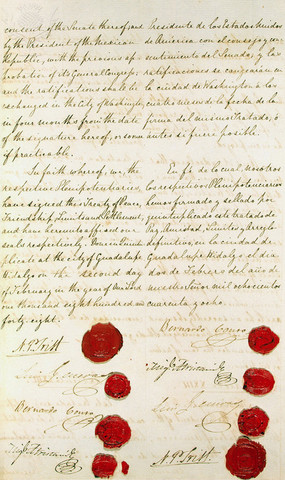 consent of the Senate thereof; and
by the President of the Mexican
Republic, with the previous ap-
probation of its General Congress;
and the ratifications shall be
exchanged in the City of Washington,
in four months from the date
of the signature hereof, or sooner
if practicable.
In faith whereof, we, the
respective Plenipotentiaries,
have signed this Treaty of Peace,
Friendship, Limits and Settlement,
and have hereunto affixed our
seals respectively. Done in Quintu-
plicate at the City of Guadalupe
Hidalgo on the second day
of February in the year of our Lord
one thousand eight hundred and
forty-eight.
N. P. Trist
Luis G. Cuevas
Bernardo Couto
Migl. Atristain
Presidente de los Estados Unidos
de America con el consejo y con-
sentimiento del Senado; y las
ratificaciones se cangearán en
la ciudad de Washington a los
cuatro meses de la fecha de la
firma del mismo Tratado, ó
antes si fuere posible.
En fe de lo cual, nosotros
los respectivos Plenipotenciarios
hemos firmado y sellado por
quintuplicado este tratado de
Paz, Amistad, Limites y Arreglo
definitivo, en la ciudad de
Guadalupe Hidalgo el dia
dos de Febrero del año de
nuestro Señor mil ochocientos
cuarenta y ocho.
Bernardo Couto
Migl. Atristain
Luis G. Cuevas
N. P. Trist